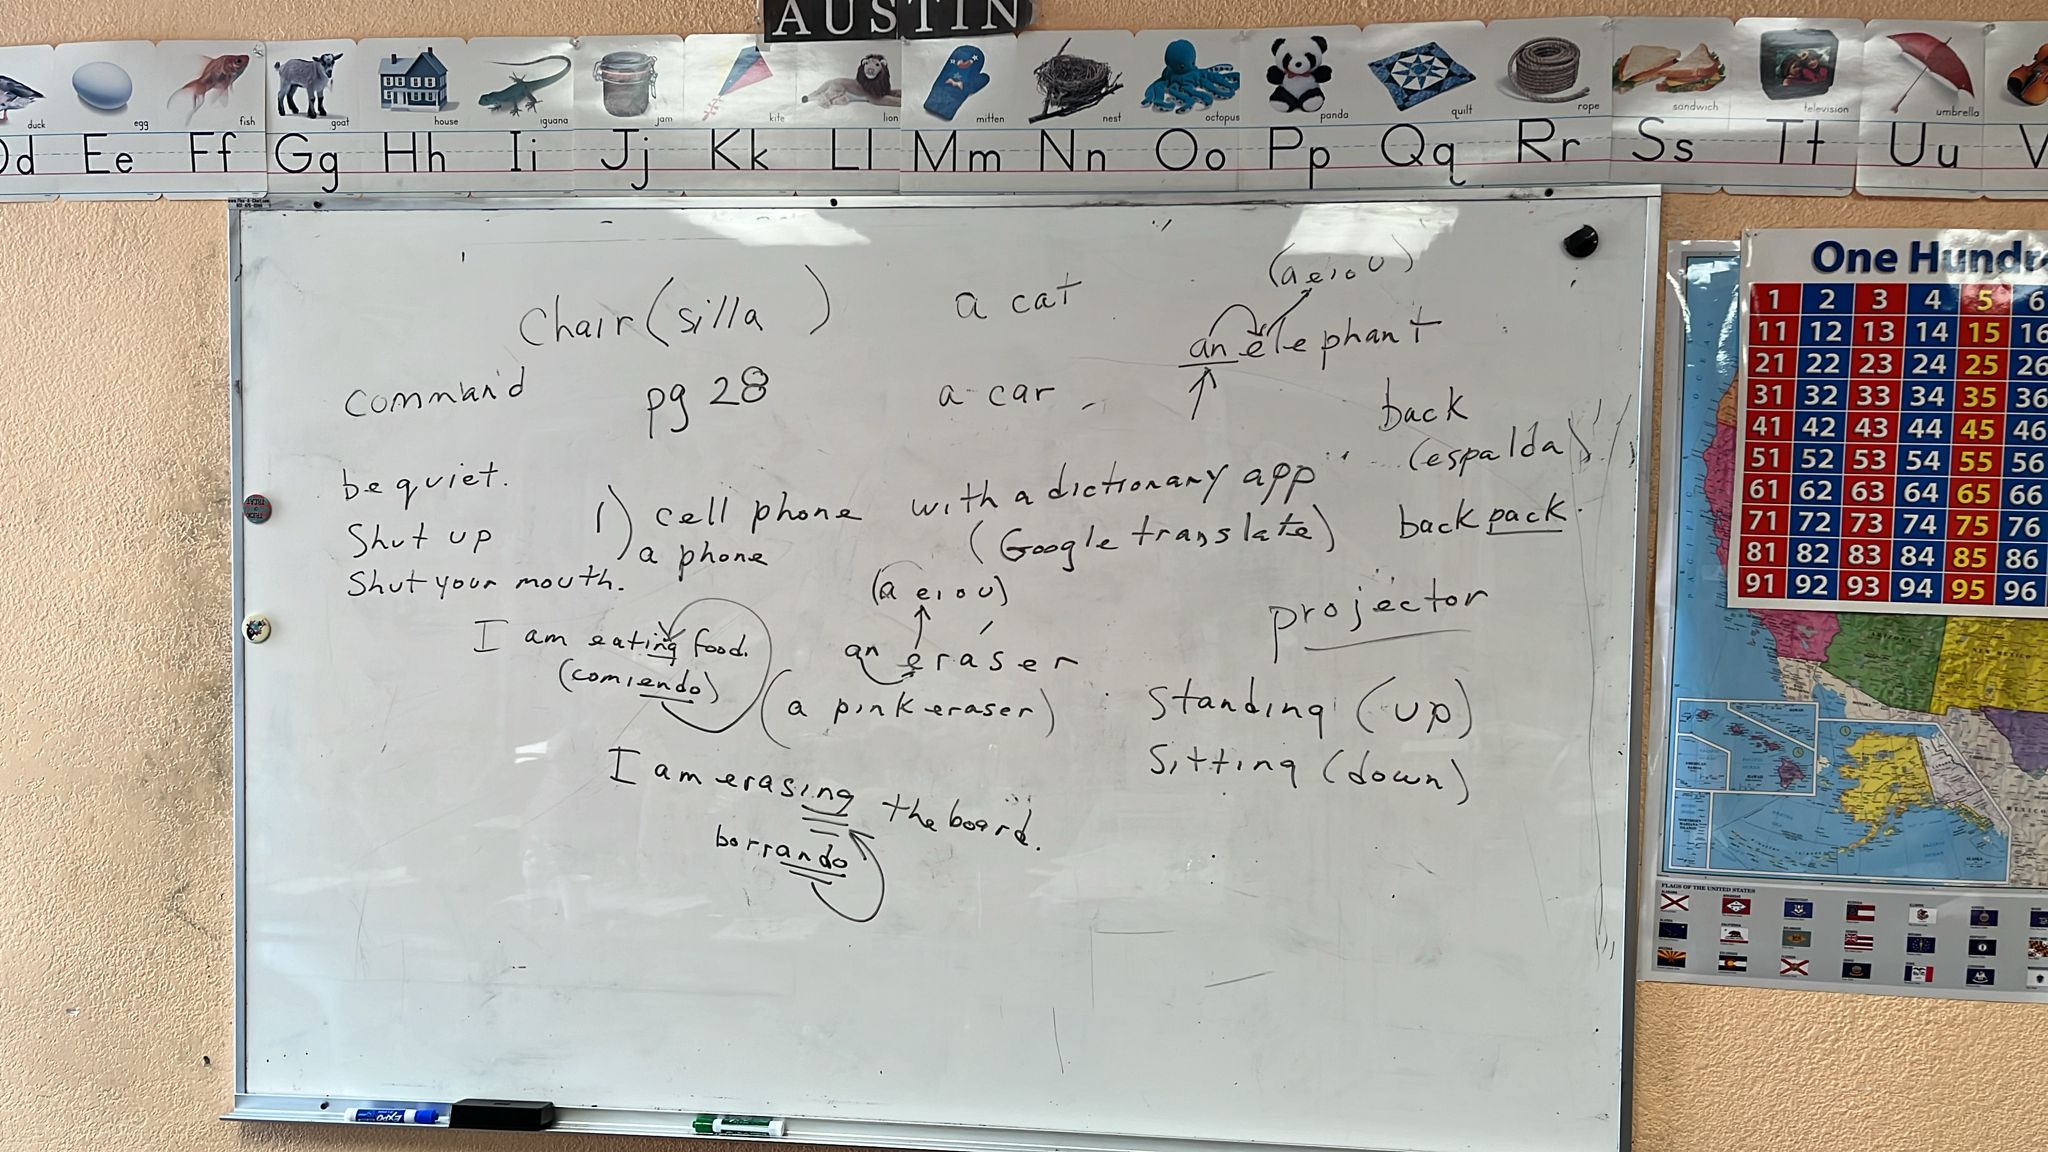 AUSTIN
duck egg fish goat house iguana jam kite lion mitten nest octopus panda quilt rope sandwich television umbrella
Dd Ee Ff Gg Hh Ii Jj Kk Ll Mm Nn Oo Pp Qq Rr Ss Tt Uu V
Chair (silla )
a cat
(a e i o u)
an elephant
command
pg 28
a car
back
(espalda)
be quiet.
Shut up
Shut your mouth.
1) cell phone with a dictionary app
a phone (Google translate)
backpack
I am eating food.
(comiendo)
(a e i o u)
an eraser
(a pink eraser)
projector
Standing (up)
Sitting (down)
I am erasing the board.
borrando
EXPO
One Hundre
1 2 3 4 5 6
11 12 13 14 15 16
21 22 23 24 25 26
31 32 33 34 35 36
41 42 43 44 45 46
51 52 53 54 55 56
61 62 63 64 65 66
71 72 73 74 75 76
81 82 83 84 85 86
91 92 93 94 95 96
PACIFIC
ARIZONA
NEW MEXICO
FLAGS OF THE UNITED STATES